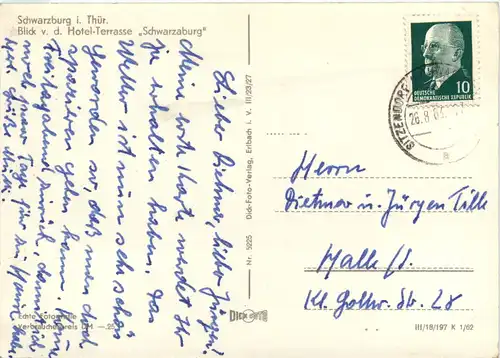 Schwarzburg i. Thür.
Blick v. d. Hotel-Terrasse „Schwarzaburg"
Lieber Dietmar, lieber Jürgen!
Meine erste Karte werdet Ihr
ja erhalten haben. Das
Wetter ist nun sehr schön
geworden so, daß man doch
spazieren gehen kann.
Freitagabend zurück, damit ich
noch paar Tage für zu Hause habe.
Echte Fotografie
Verbraucherpreis DM —.25
Nr. 5225 Dick-Foto-Verlag, Erlbach i. V. III/23/27
DICK FOTO
DEUTSCHE
DEMOKRATISCHE REPUBLIK
10
SITZENDORF
26.8.63
a
Herrn
Dietmar u. Jürgen Tille
Halle/S.
Kl. Gottw. Str. 28
III/18/197 K 1/62